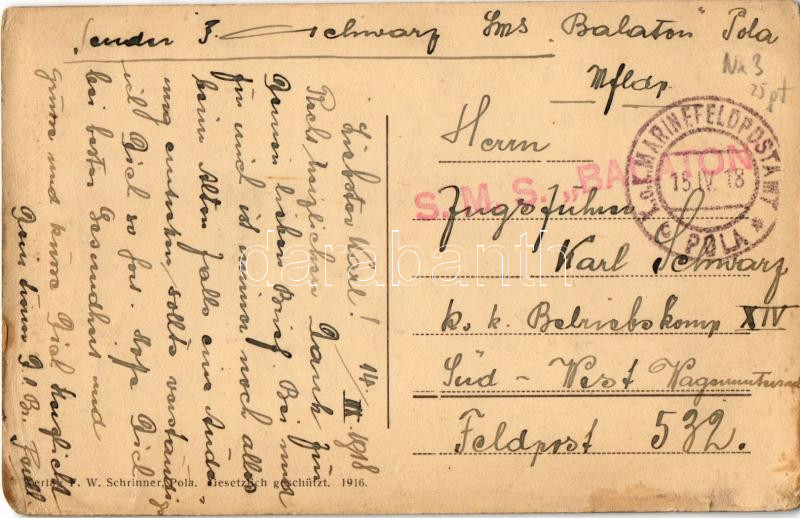 Sender F. Schwarz Sms „Balaton" Pola
Mfldp
No 3
25 pf
Herrn
Zugsführer
Karl Schwarz
k. k. Betriebskomp XIV
Süd - West
Feldpost 532.
S. M. S. „BALATON"
K.u.K. MARINEFELDPOSTAMT
15.IV.18
c POLA *
14/III 1918
Liebster Karl!
Recht herzlichen Dank für
Deinen lieben Brief. Bei mir
für mich ist immer noch alles
beim Alten falls eine Ände-
rung eintreten sollte verständige
ich Dich so fort. Hoffe Dich
bei bester Gesundheit und
grüsse und küsse Dich herzlichst
Dein
Verlag F. W. Schrinner, Pola. Gesetzlich geschützt. 1916.
darabanth